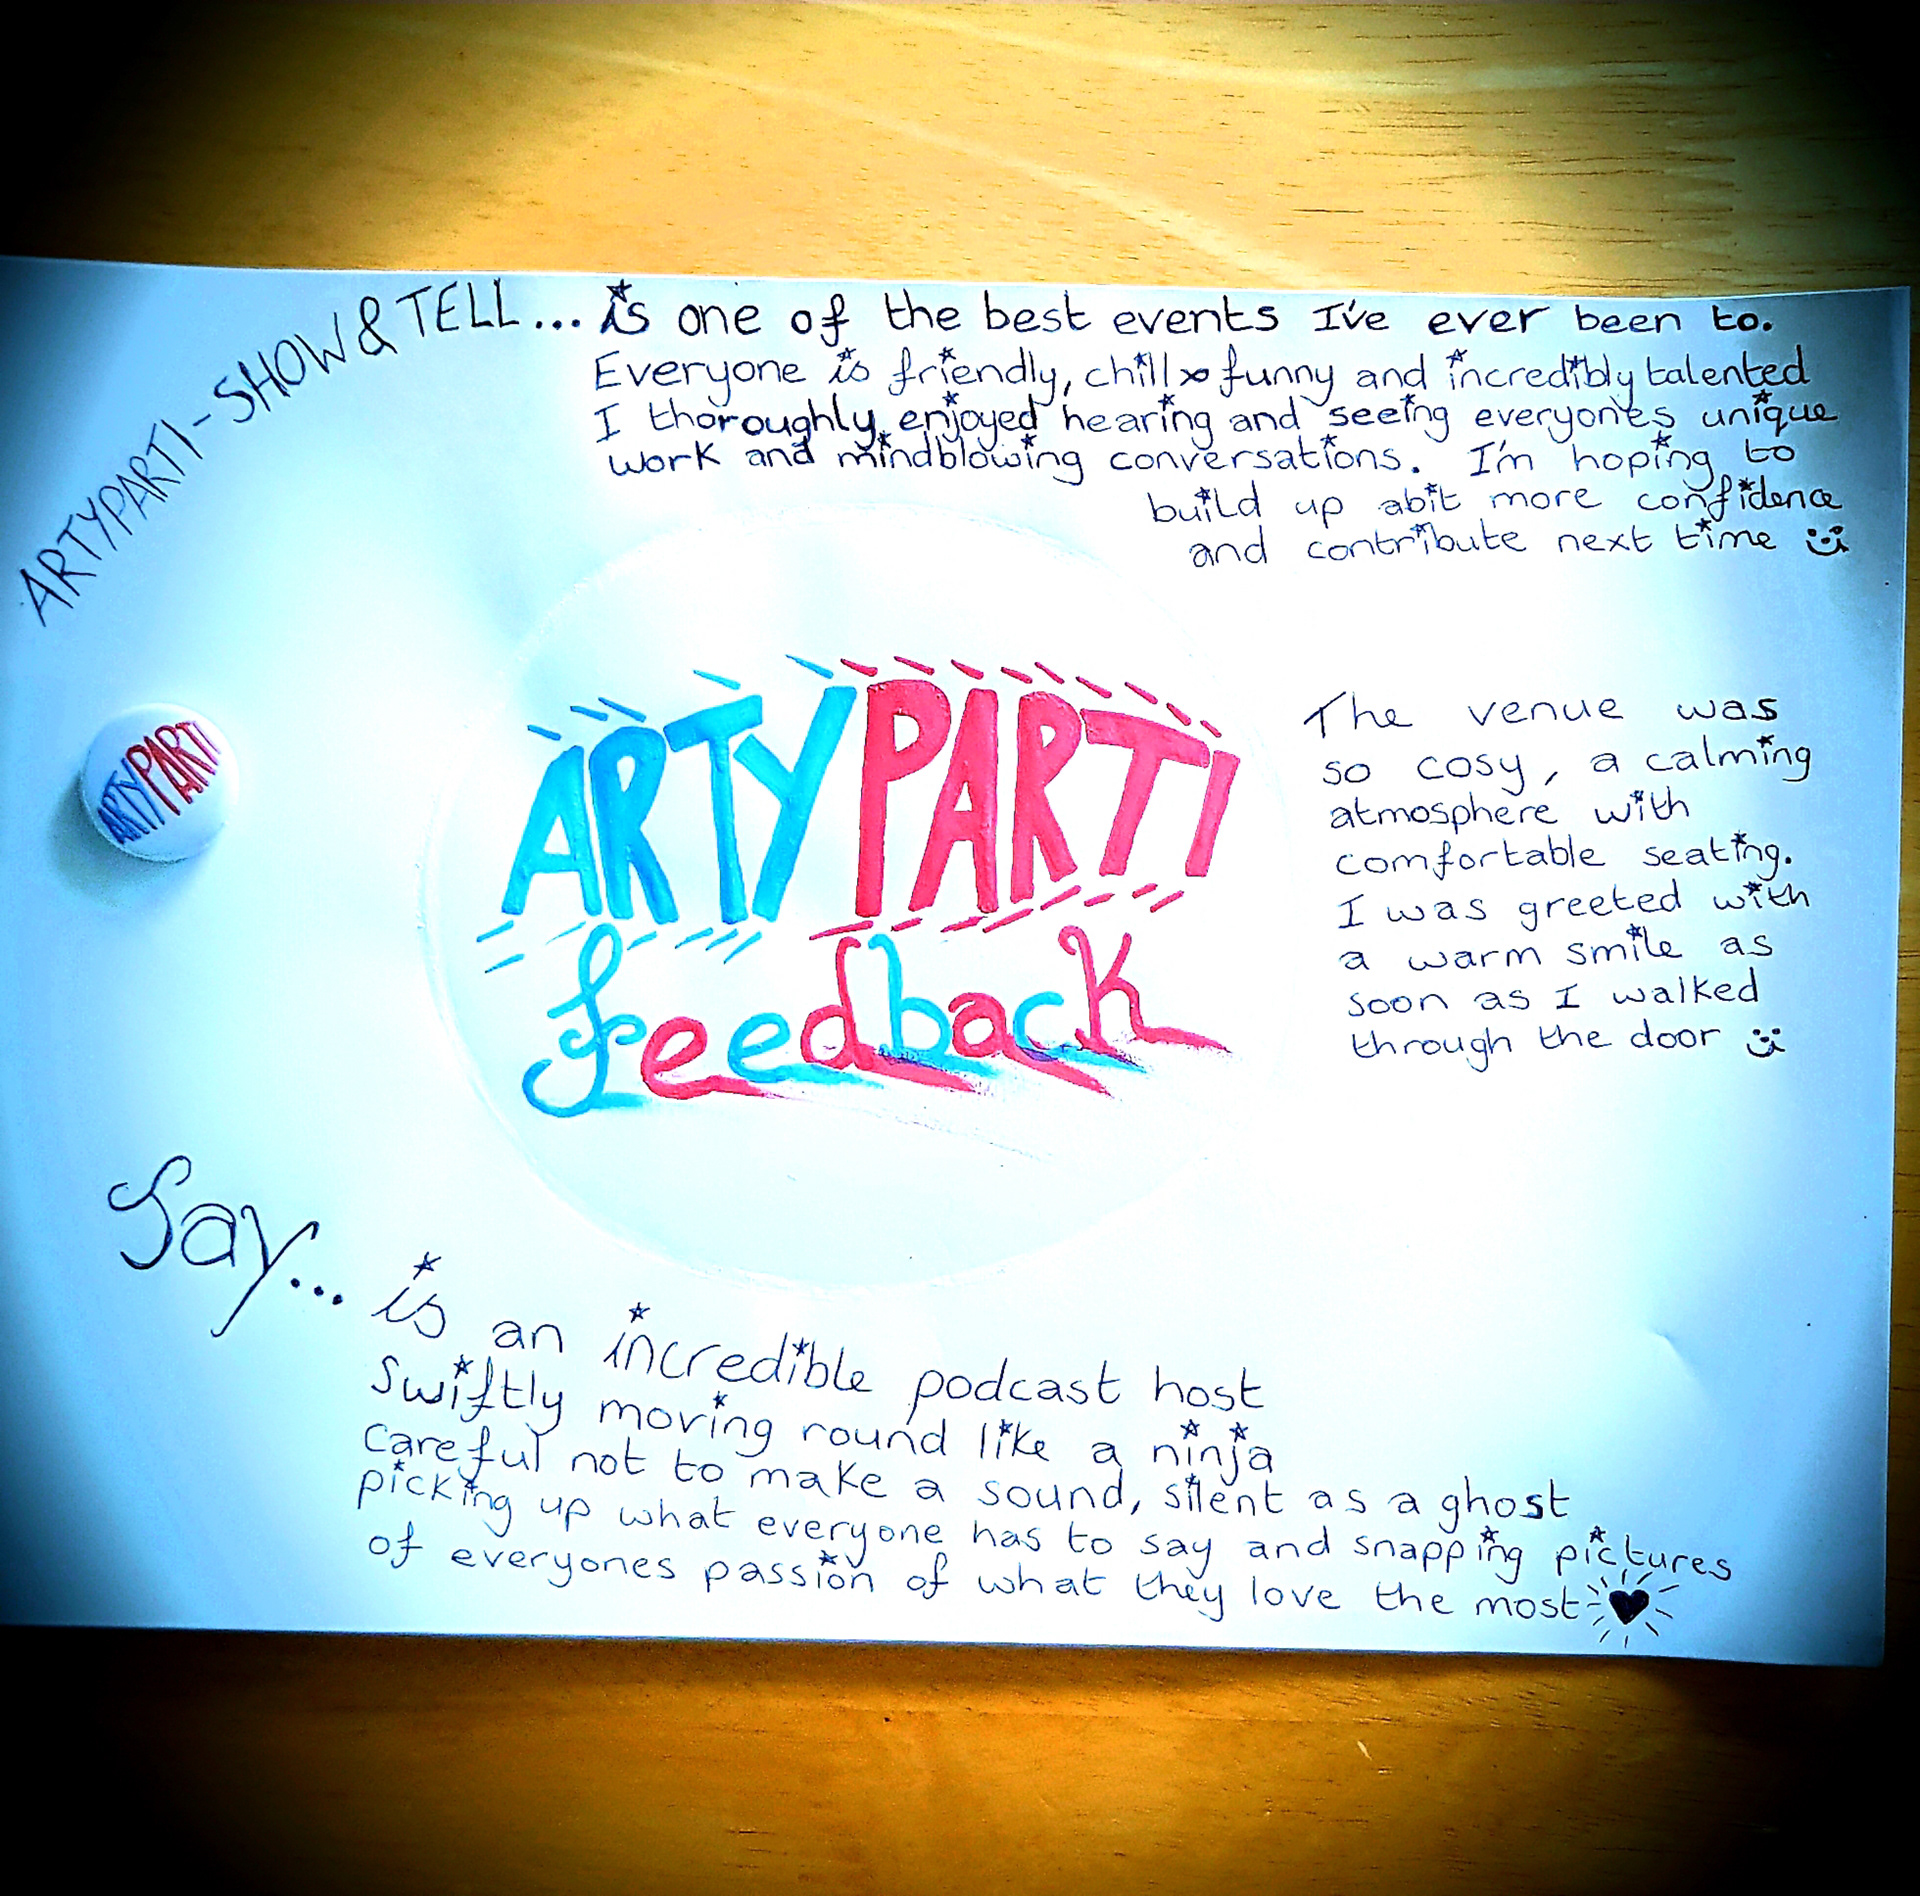 ARTYPARTI-SHOW & TELL... is one of the best events I've ever been to.
Everyone is friendly, chill & funny and incredibly talented
I thoroughly enjoyed hearing and seeing everyone's unique
work and mindblowing conversations. I'm hoping to
build up abit more confidence
and contribute next time
ARTYPARTI
ARTYPARTI
feedback
The venue was
so cosy, a calming
atmosphere with
comfortable seating.
I was greeted with
a warm smile as
soon as I walked
through the door
Jay... is an incredible podcast host
Swiftly moving round like a ninja
Careful not to make a sound, silent as a ghost
picking up what everyone has to say and snapping pictures
of everyones passion of what they love the most